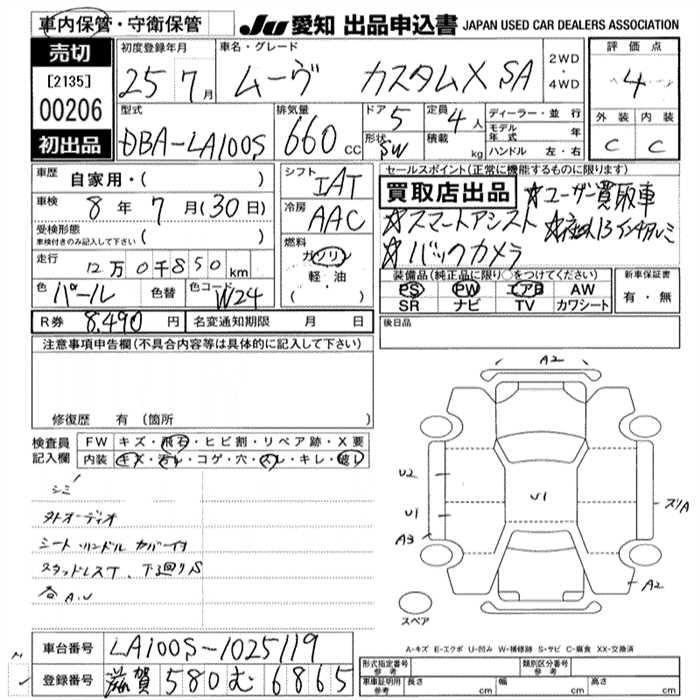 車内保管・守衛保管
JU 愛知 出品申込書 JAPAN USED CAR DEALERS ASSOCIATION
売切
[2135]
00206
初出品
初度登録年月
25 7月
車名・グレード
ムーヴ カスタムX SA
2WD・4WD
評価点
4
外装 内装
C C
型式
DBA-LA100S
排気量
660 cc
ドア 5
形状 SW
定員 4人
積載 kg
ディーラー・並行
モデル年式 年
ハンドル 左・右
車歴 自家用・( )
車検 8年 7月(30日)
受検形態
車検付きのみ記入して下さい ( )
走行 12万0千850km
色 パール 色替 色コード W24
シフト
IAT
冷房
AAC
燃料
ガソリン
軽・油
( ・ )
セールスポイント(正常に機能するものに限ります)
買取店出品 ☆ユーザー買取車
☆スマートアシスト ☆社外13インチアルミ
☆バックカメラ
装備品(純正品に限り○をつけてください)
PS PW エアB AW
SR ナビ TV カワシート
新車保証書
有・無
R券 8,490円 名変通知期限 月 日
後日品
注意事項申告欄(不具合内容等は具体的に記入して下さい)
修復歴 有(箇所
検査員記入欄
FW キズ・飛石・ヒビ割・リペア跡・X要
内装 キズ・汚レ・コゲ・穴・スレ・キレ・破レ
シミ
外オーディオ
シート・ハンドル カバー付
スタッドレスT、下廻りS
各A.U
A2
U2
U1
A3
U1
スリA
A2
スペア
A-キズ E-エクボ U-凹み W-補修跡 S-サビ C-腐食 XX-交換済
車台番号 LA100S-1025119
登録番号 滋賀 580 む 6865
形式指定番号 参考
類別区分番号 参考
車庫証明用 参考 長さ cm 幅 cm 高さ cm